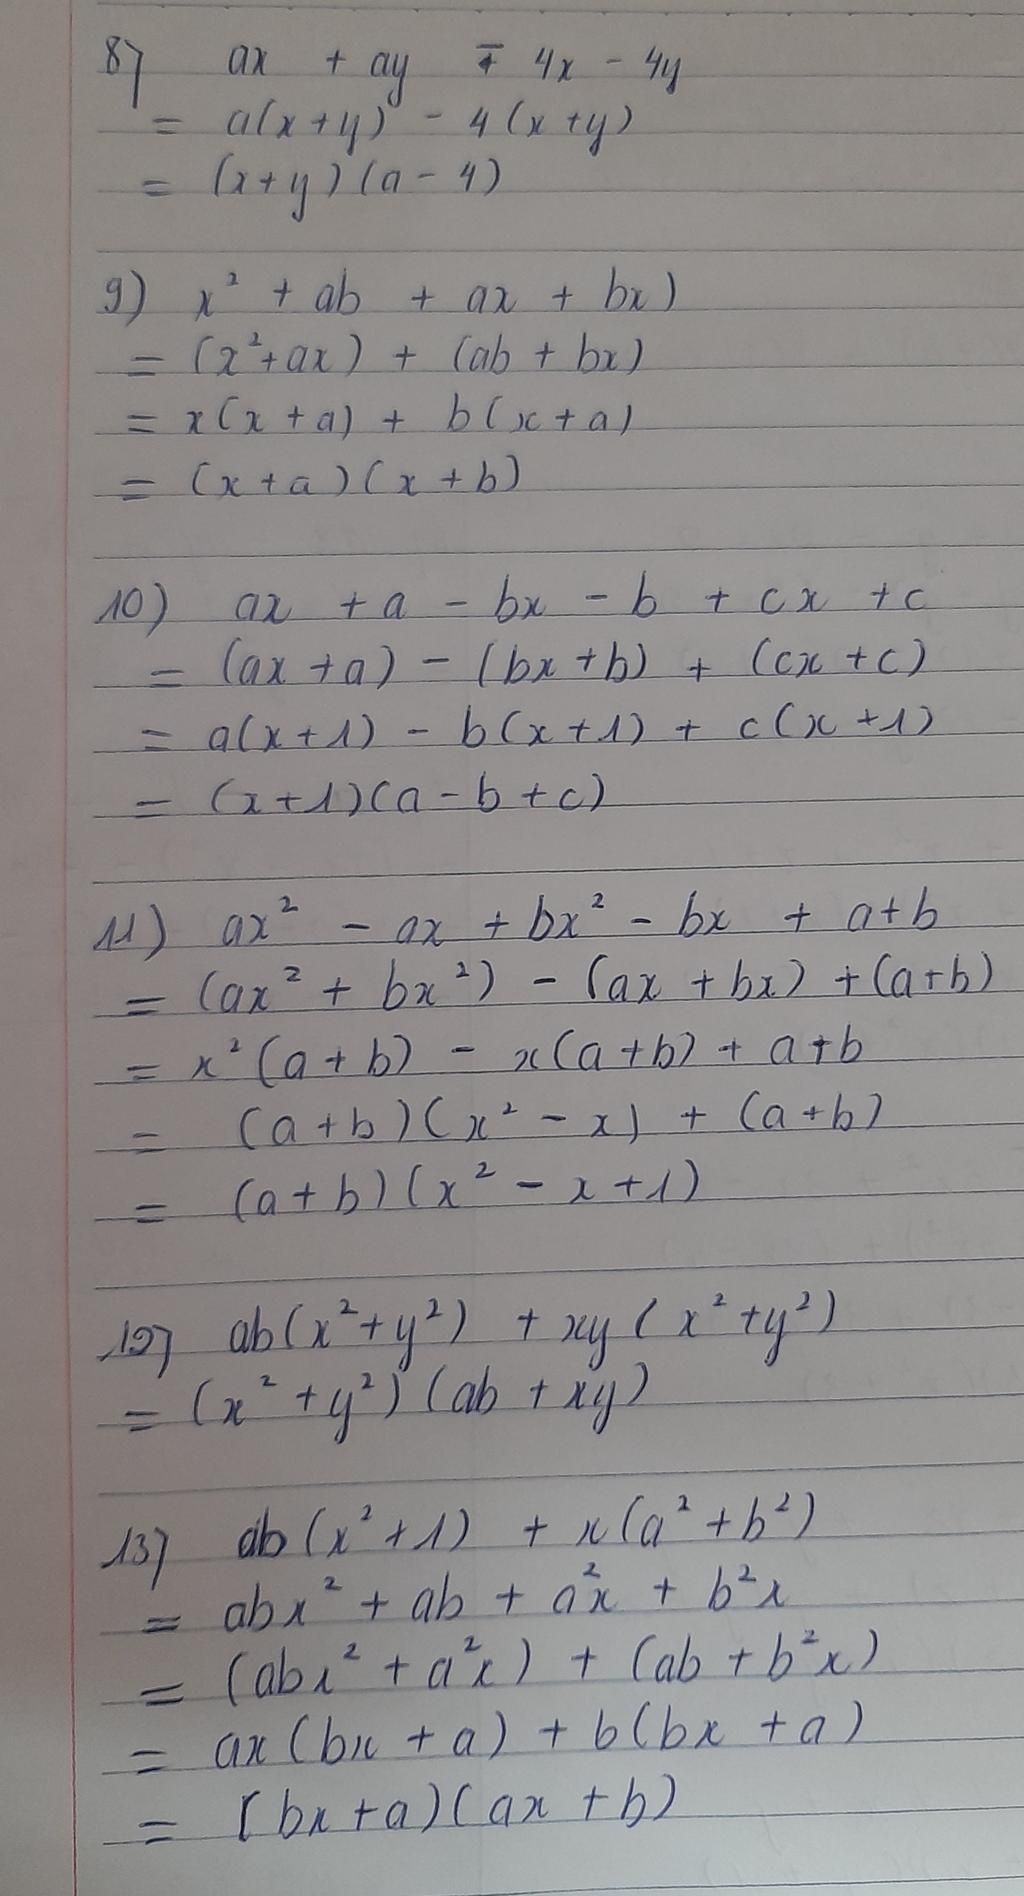 8) ax + ay ∓ 4x - 4y
= a(x+y) - 4(x+y)
= (x+y)(a-4)
9) x² + ab + ax + bx)
= (x²+ax) + (ab + bx)
= x(x+a) + b(x+a)
= (x+a)(x+b)
10) ax + a - bx - b + cx + c
= (ax+a) - (bx+b) + (cx+c)
= a(x+1) - b(x+1) + c(x+1)
= (x+1)(a-b+c)
11) ax² - ax + bx² - bx + a+b
= (ax² + bx²) - (ax + bx) + (a+b)
= x²(a+b) - x(a+b) + a+b
= (a+b)(x² - x) + (a+b)
= (a+b)(x² - x+1)
12) ab(x²+y²) + xy(x²+y²)
= (x²+y²)(ab+xy)
13) ab(x²+1) + x(a²+b²)
= abx² + ab + a²x + b²x
= (abx² + a²x) + (ab+b²x)
= ax(bx+a) + b(bx+a)
= (bx+a)(ax+b)